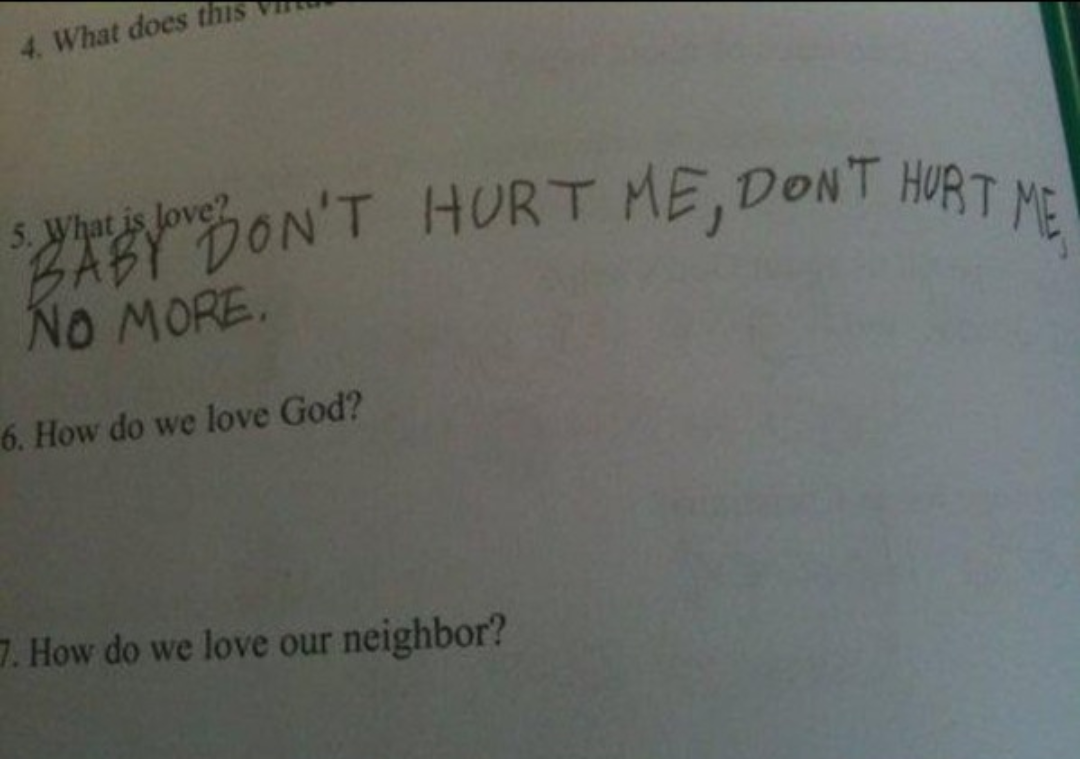 4. What does this
5. What is love?
BABY DON'T HURT ME, DON'T HURT ME,
NO MORE.
6. How do we love God?
7. How do we love our neighbor?